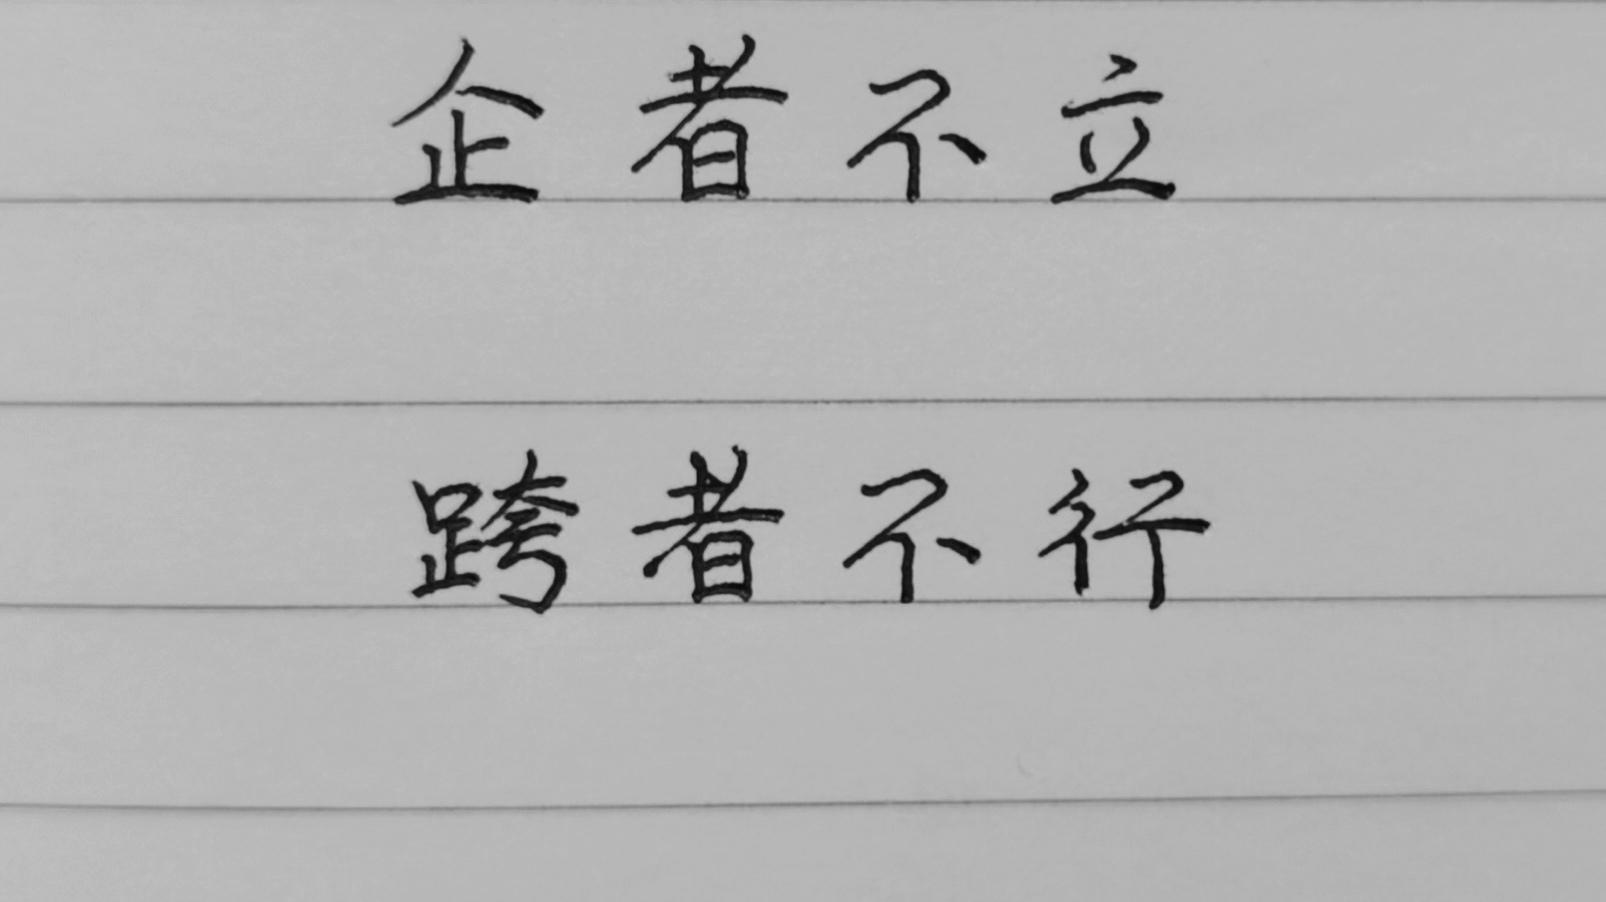 企者不立
跨者不行